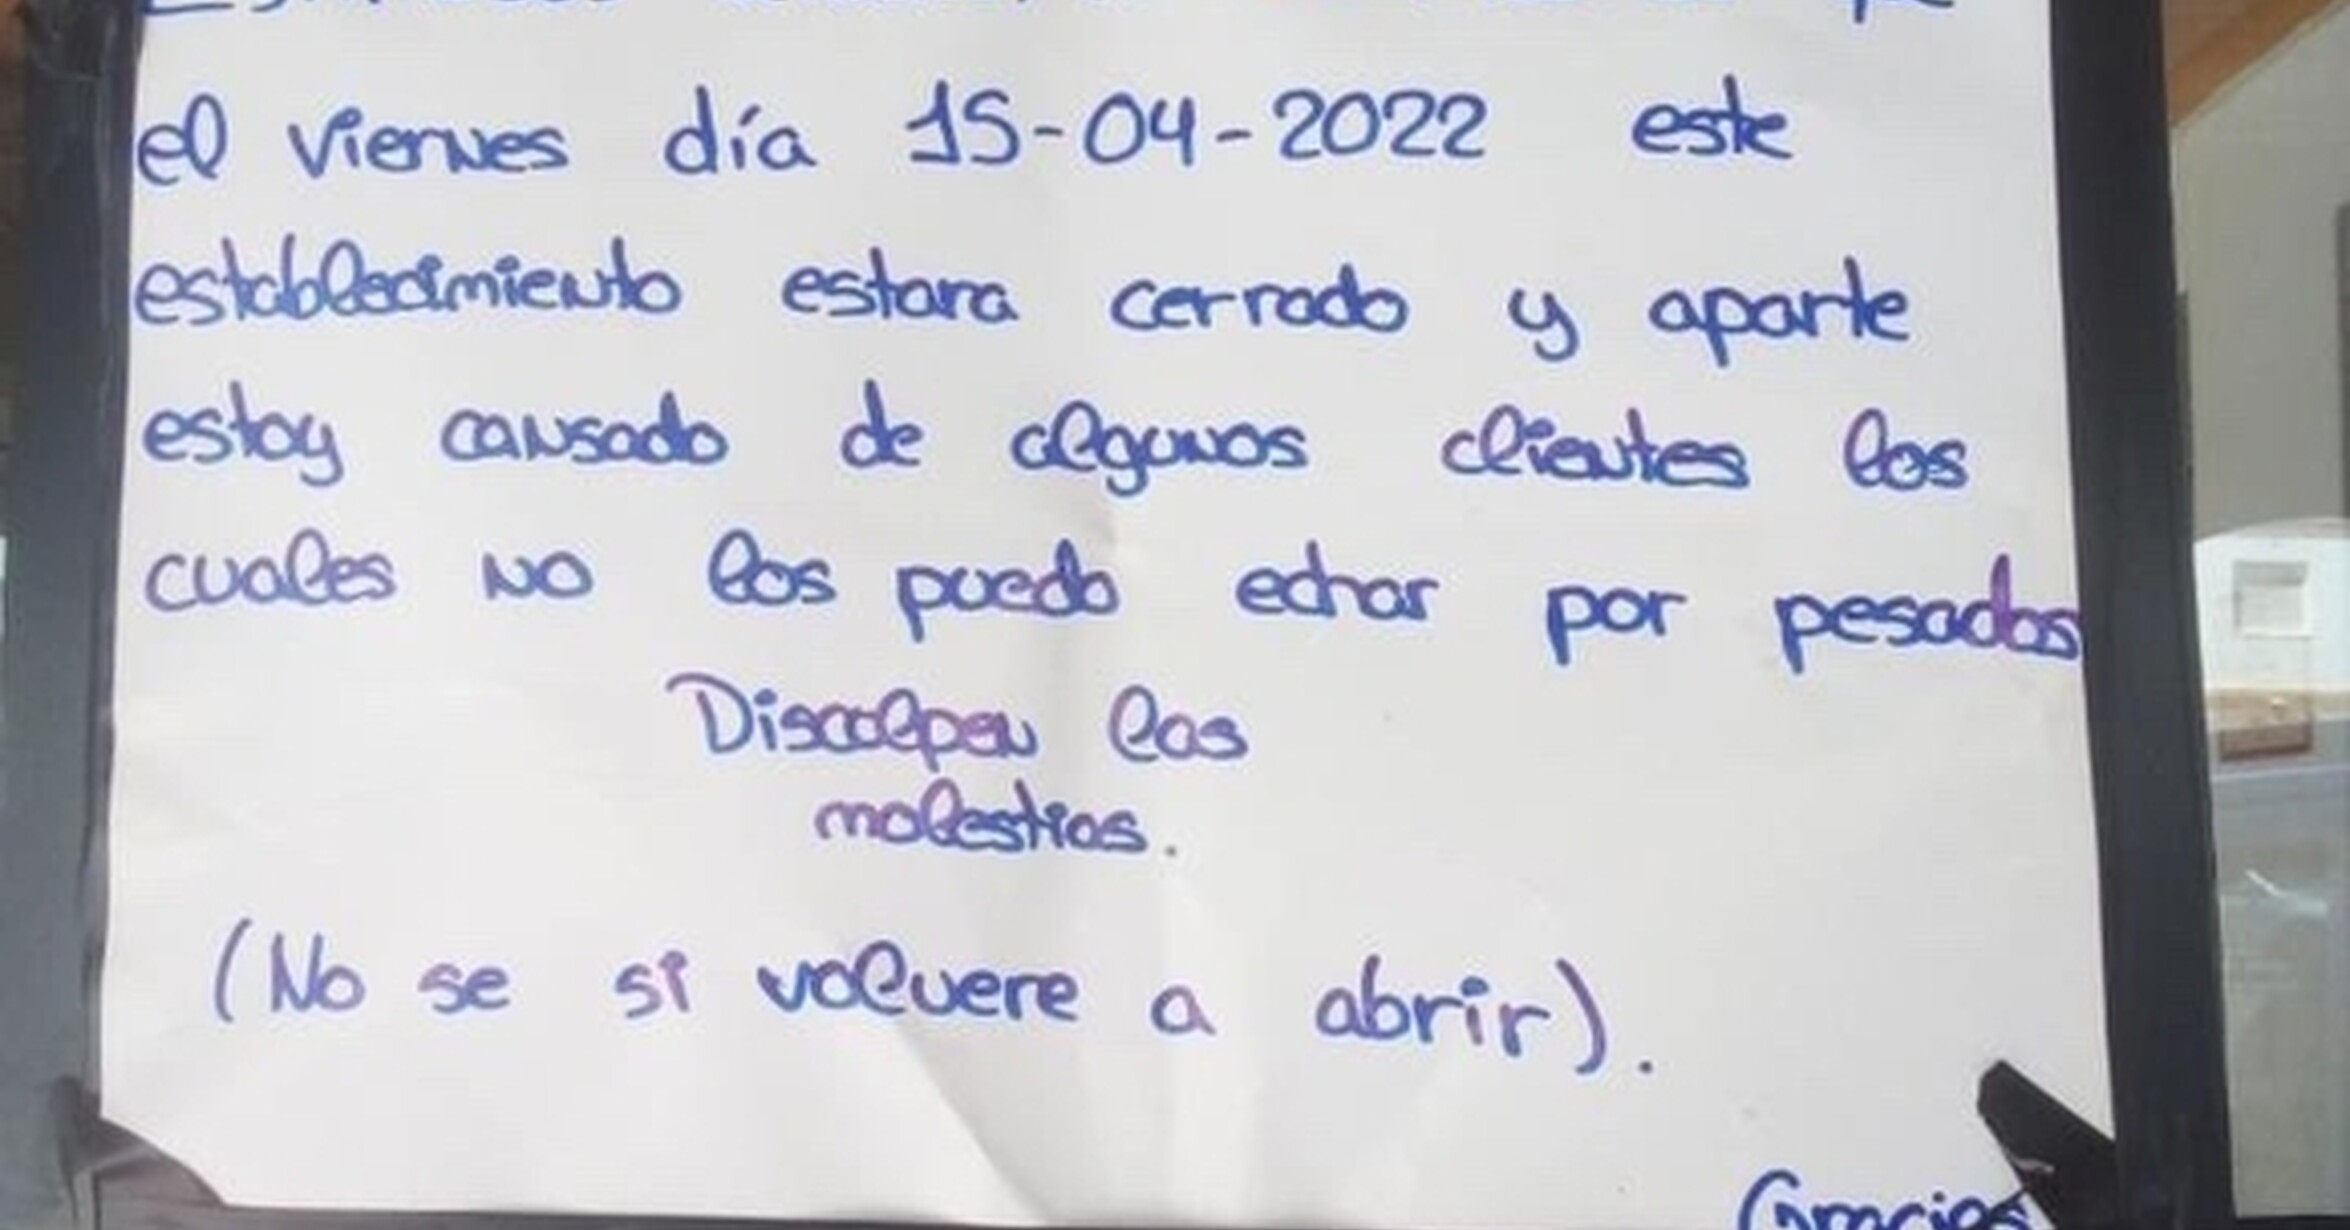 el viernes día 15-04-2022 este
establecimiento estara cerrado y aparte
estoy cansado de algunos clientes los
cuales no los puedo echar por pesados
Disculpen las
molestias.
(No se si volvere a abrir).
Gracias